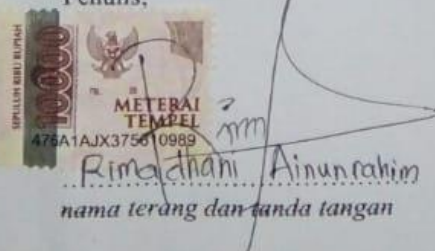 Penulis,
SEPULUH RIBU RUPIAH
10000
METERAI
TEMPEL
476A1AJX375610989
Rimadhani Ainunrahim
nama terang dan tanda tangan